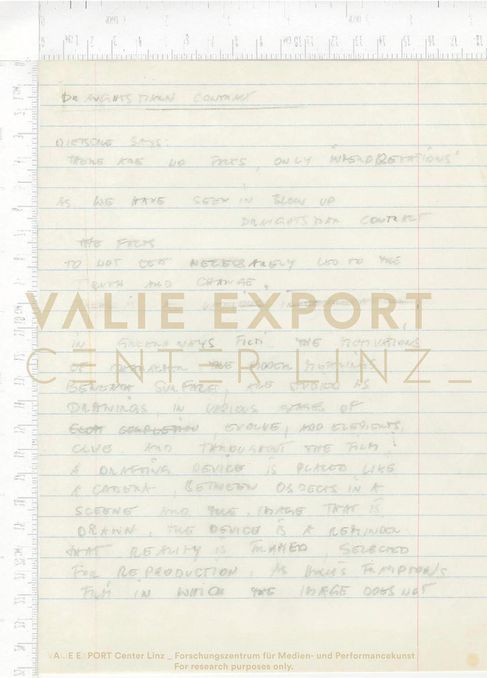 DRAUGHTSMAN CONTRACT
NIETSCHE SAYS:
THERE ARE NO FACTS, ONLY "INTERPRETATIONS"
AS WE HAVE SEEN IN BLOW UP
DRAUGHTSMAN CONTRACT
THE FACTS
TO NOT NECESSARELY LED TO THE
AND CHANGE.
VALIE EXPORT
CENTER LINZ_
IN GREENAWAYS FILM THE MOTIVATIONS
OF THE HIDDEN
BENEATH SURFACE, THE AS
DRAWINGS, IN VARIOUS STAGES OF
COMPLETION, EVOLVE, ADD ELEMENTS,
CLUE, AND THROUGHOUT THE FILM
A DRAFTING DEVICE IS PLACED LIKE
A CAMERA, BETWEEN OBJECTS IN A
SCEENE AND THE IMAGE THAT IS
DRAWN, THE DEVICE IS A REMINDER
THAT REALITY IS FRAMED, SELECTED
FOR REPRODUCTION, AS FRAMPTON'S
FILM IN WHICH THE IMAGE DOES NOT
VALIE EXPORT Center Linz _ Forschungszentrum für Medien- und Performancekunst
For research purposes only.